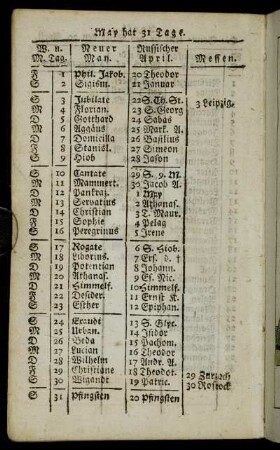 May hat 31 Tage.
W. u. Neuer Russischer
M. Tag. May. April. Messen.
F 1 Phil. Jakob. 20 Theodor
S 2 Sigism. 21 Januar
S 3 Jubilate 22 S. Th. St. 3 Leipzig.
M 4 Florian. 23 S. Georg
D 5 Gotthard 24 Sabas
M 6 Aggäus 25 Mark. A.
D 7 Domicilla 26 Basilius
F 8 Stanisl. 27 Simeon
S 9 Hiob 28 Jason
S 10 Cantate 29 S. 9. M.
M 11 Mammert. 30 Jacob A.
D 12 Pankraz. 1 May
M 13 Servatius 2 Athanas.
D 14 Christian 3 T. Maur.
F 15 Sophie 4 Pelag
S 16 Peregrinus 5 Irene
S 17 Rogate 6 S. Hiob.
M 18 Liborius. 7 Ersch. d. †
D 19 Potentian 8 Johann.
M 20 Athanas. 9 Ef. Nic.
D 21 Himmelf. 10 Himmelf.
F 22 Desider. 11 Ernst K.
S 23 Esther 12 Epiphan.
S 24 Exaudi 13 S. Glyc.
M 25 Urban. 14 Isidor
D 26 Beda 15 Pachom.
M 27 Lucian 16 Theodor
D 28 Wilhelm 17 Andr. A.
F 29 Christiane 18 Theodor. 29 Zurzach
S 30 Wigandt 19 Patric. 30 Rostock
S 31 Pfingsten 20 Pfingsten